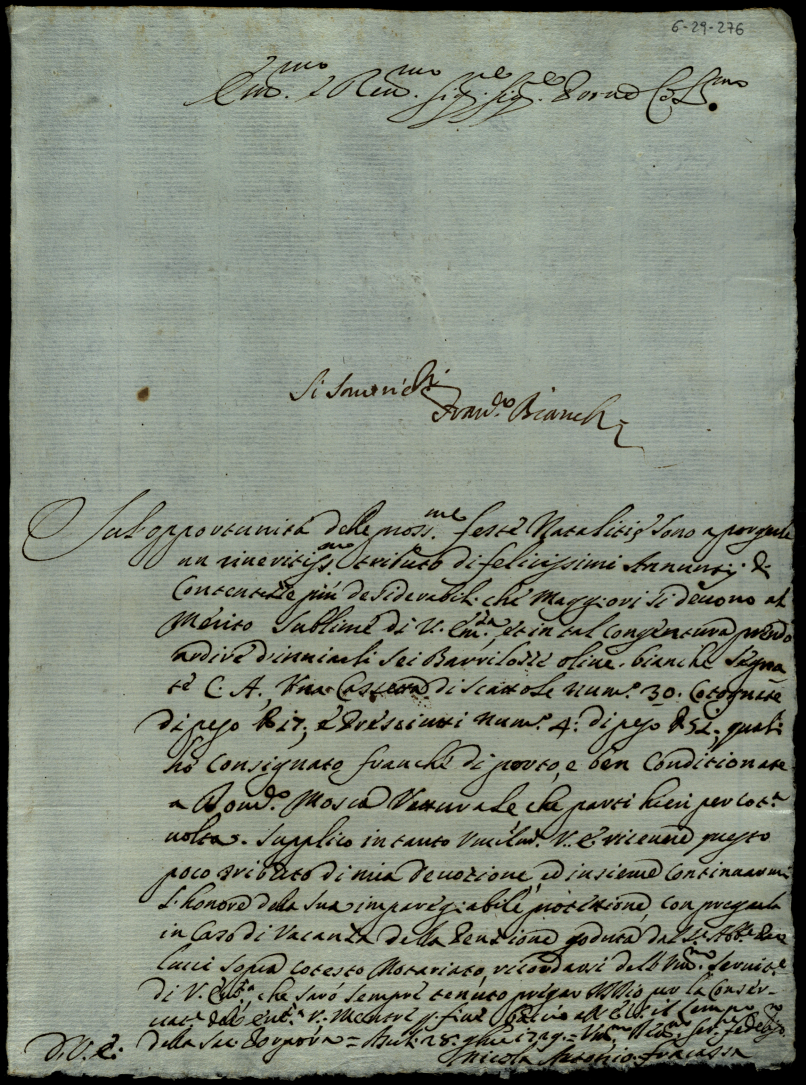 6-29-276
Em.mo e Rev.mo Sig.re Sig.re Pro͞ne Col.mo
Si Somin
Fran.co Bianchi
Sul opportunità delle pross.me feste Natalitie sono a porgerle
un riveritiss.mo tributo di felicissimi Annunzij di
Contentezze più desiderabili che Maggiori si devono al
Merito sublime di V. Em.za, et in tal congentura prendo
ardire d'inviarli sei Barrilozzi olive bianche segna
te C. A. Una Cassetta di scattole num.o 30. Cotognate
di peso lb 17; e Presciutti num.o 4: di peso lb 52; quali
hò consignato franche di porto, e ben conditionate
a Mosca Vetturale che partì hieri per cot.a
volta. Supplico in tanto V. E. ricevere questo
poco tributo di mia devozione ed insieme continuarmi
l'honore della sua impareggiabile protezione, con pregarla
in caso di Vacanza della Penzione goduta dal S. Abb.e
lucci sopra cotesto Notariato, ricordarsi dell' Um.mo servit.e
di V. Em.za, che sarò sempre tenuto pregar Iddio per la Conser-
vat.e dell' Em.za V. Mentre per fine bacio a V. E. il lembo
della Sac. Porpora = 28. 9bre 1729 = Um.mo
D. V. E.
Nicola Antonio Fracassa